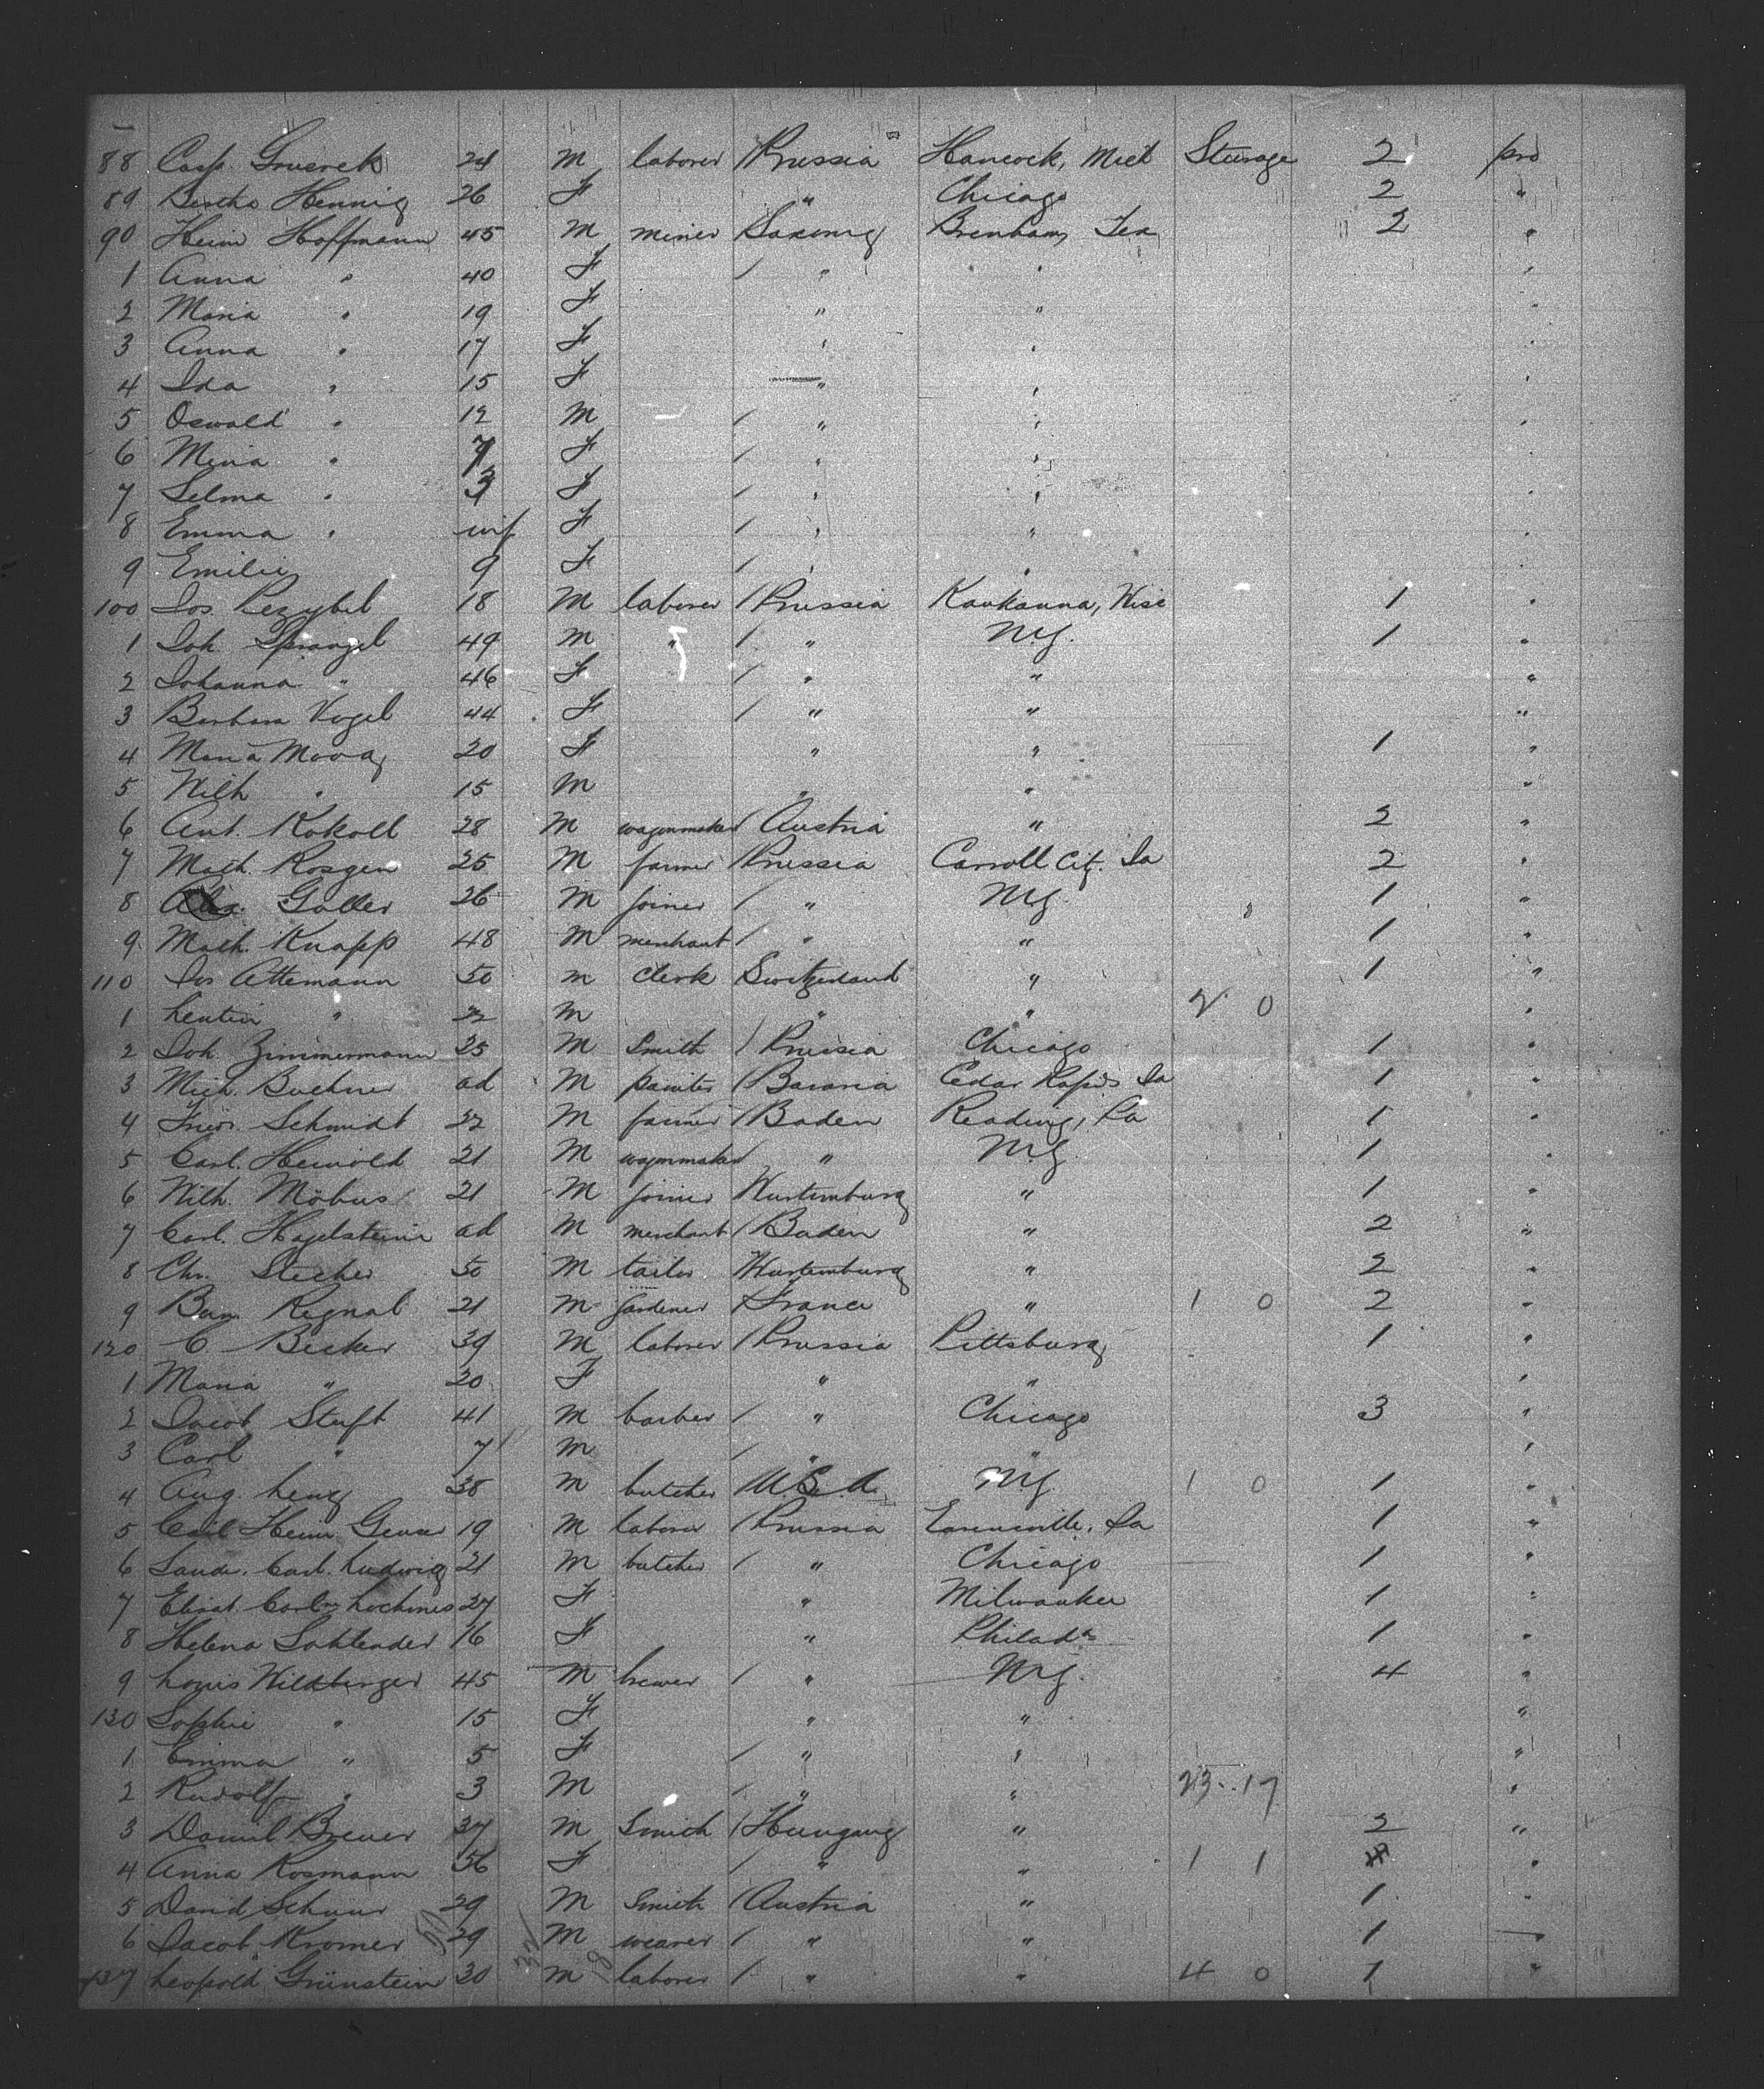 88 Casp. Gruerek 24 M laborer / Prussia Hancock, Mich Steerage 2 pro
89 Bertha Hennig 26 F " Chicago 2 "
90 Heinr Hoffmann 45 M miner Saxony Brenham, Tex 2 "
1 Anna " 40 F / " " "
2 Maria " 19 F " " "
3 Anna " 17 F " " "
4 Ida " 15 F " " "
5 Oswald " 12 M / " " "
6 Mina " 7 F / " " "
7 Selma " 3 F / " " "
8 Emma " inf F / " " "
9 Emilie 9 F / " " "
100 Jos. 18 M laborer / Prussia Kaukauna, Wisc 1 "
1 Joh. Sprangel 49 M " / " N.Y. 1 "
2 Johanna " 46 F / " " "
3 Barbara Vogel 44 F / " " "
4 Maria Moog 20 F " " 1 "
5 Wilh " 15 M " " "
6 Ant. Kokoll 28 M wagonmaker / Austria " 2 "
7 Math. Rosgen 25 M farmer / Prussia Carroll City. Ia 2 "
8 Goller 26 M joiner / " N.Y. " 1 "
9 Math. Knapp 48 M merchant / " " 1 "
110 Jos Attemann 50 M clerk Switzerland " 1 "
1 " 22 M " " 2 0 "
2 Joh. Zimmermann 25 M Smith / Prussia Chicago 1 "
3 Mich. Buchner ad M painter / Bavaria Cedar Rapids Ia 1 "
4 Friedr. Schmidt 22 M farmer / Baden Reading, Pa 1 "
5 Carl. Heinold 21 M wagonmaker " N.Y. 1 "
6 Wilh. Möbus 21 M joiner Wurtemburg " 1 "
7 Carl. Hagelstein ad M merchant / Baden " 2 "
8 Chr. Stecher 50 M tailor Wurtemburg " 2 "
9 Regnal 21 M gardener / France " 1 0 2 "
120 C. Becker 39 M laborer / Prussia Pittsburg 1 "
1 Maria " 20 F " " "
2 Jacob Stuft 41 M barber / " Chicago 3 "
3 Carl " 7 M / " " "
4 Aug. Lenz 38 M butcher U.S.A. N.Y. 1 0 1 "
5 Carl Heinr. 19 M laborer / Prussia Ia 1 "
6 Carl. Ludwig 21 M butcher / " Chicago 1 "
7 Elisab. 27 F " Milwaukee 1 "
8 Helena Sahlender 16 F " Philada 1 "
9 Louis Wildberger 45 M brewer / " N.Y. 4 "
130 Sophie " 15 F " " "
1 Emma " 5 F / " " "
2 Rudolf " 3 M / " " 23 .. 17 "
3 Daniel Breuer 37 M Smith / Hungary " 2 "
4 Anna Rosmann 56 F / " " 1 1 "
5 David Schnur 29 M Smith / Austria " 1 "
6 Jacob Kromer 29 M weaver / " " 1 "
137 Leopold Grünstein 30 M laborer / " " 4 0 1 "